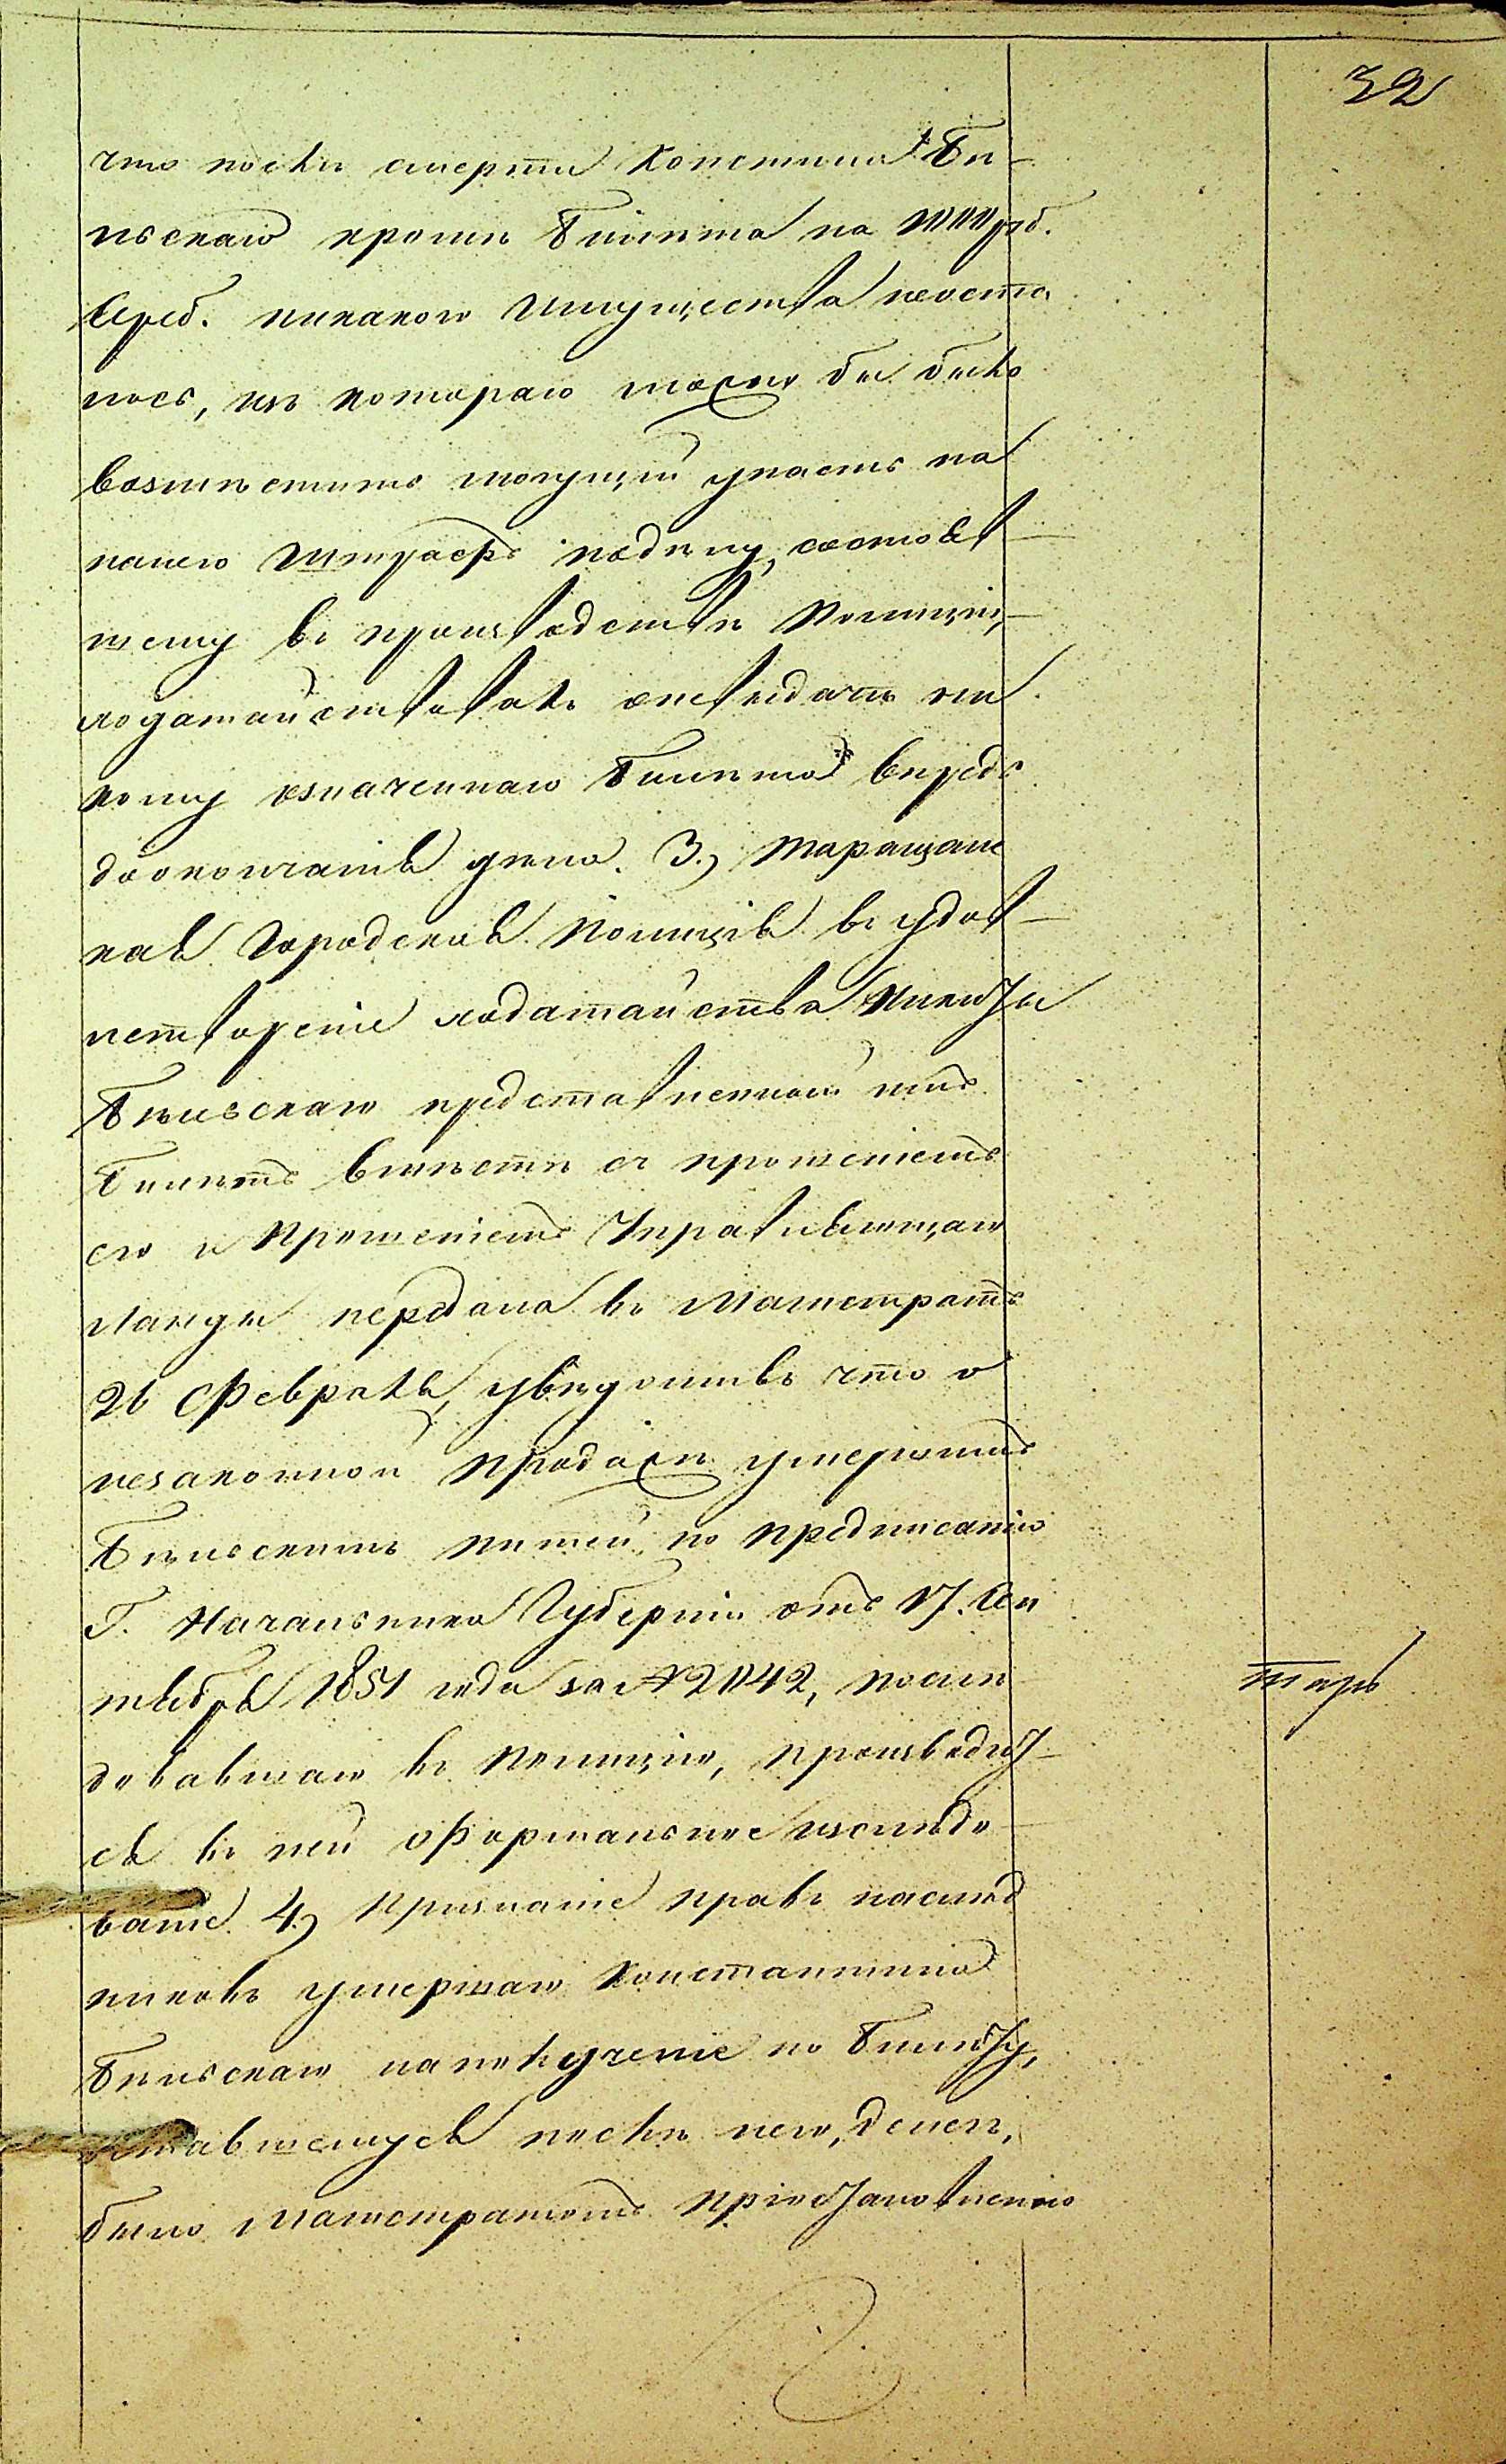 32
что послѣ смерти Констант. Бѣ-
льскаго кромѣ билѣта на 1000 руб.
сереб. никакого имущества неоста
лось, изъ котораго можно бы было
возмѣстить могущій упасть на
него штрафъ по дѣлу, состояв-
шему въ производствѣ Полиціи,
ходатайствовалъ невыдать ни
кому означеннаго билѣта впредь
доокончанія дѣла. 3., Таращанс
кая Городская Полиція въ удов-
летвореніе ходатайства Никиты
Бѣльскаго представленный имъ
билѣтъ вмѣстѣ съ прошеніемъ
его и прошеніемъ Управляющаго
Ланды передала въ Магистратъ
26 Февраля, увѣдомивъ что о
незаконной продажѣ умершимъ
Бѣльскимъ питей, по предписанію
Г. Начальника Губерніи отъ 17. Сен
тября 1851 года за № 21142, послѣ
довавшаго въ Полицію, производит-
ся въ ней формальное изслѣдо-
ваніе. 4., Признаніе правъ наслѣд
никовъ умершаго Константина
Бѣльскаго на полученіе по билету,
оставшемуся послѣ него, денегъ,
было Магистратомъ пріостановлено
тарь